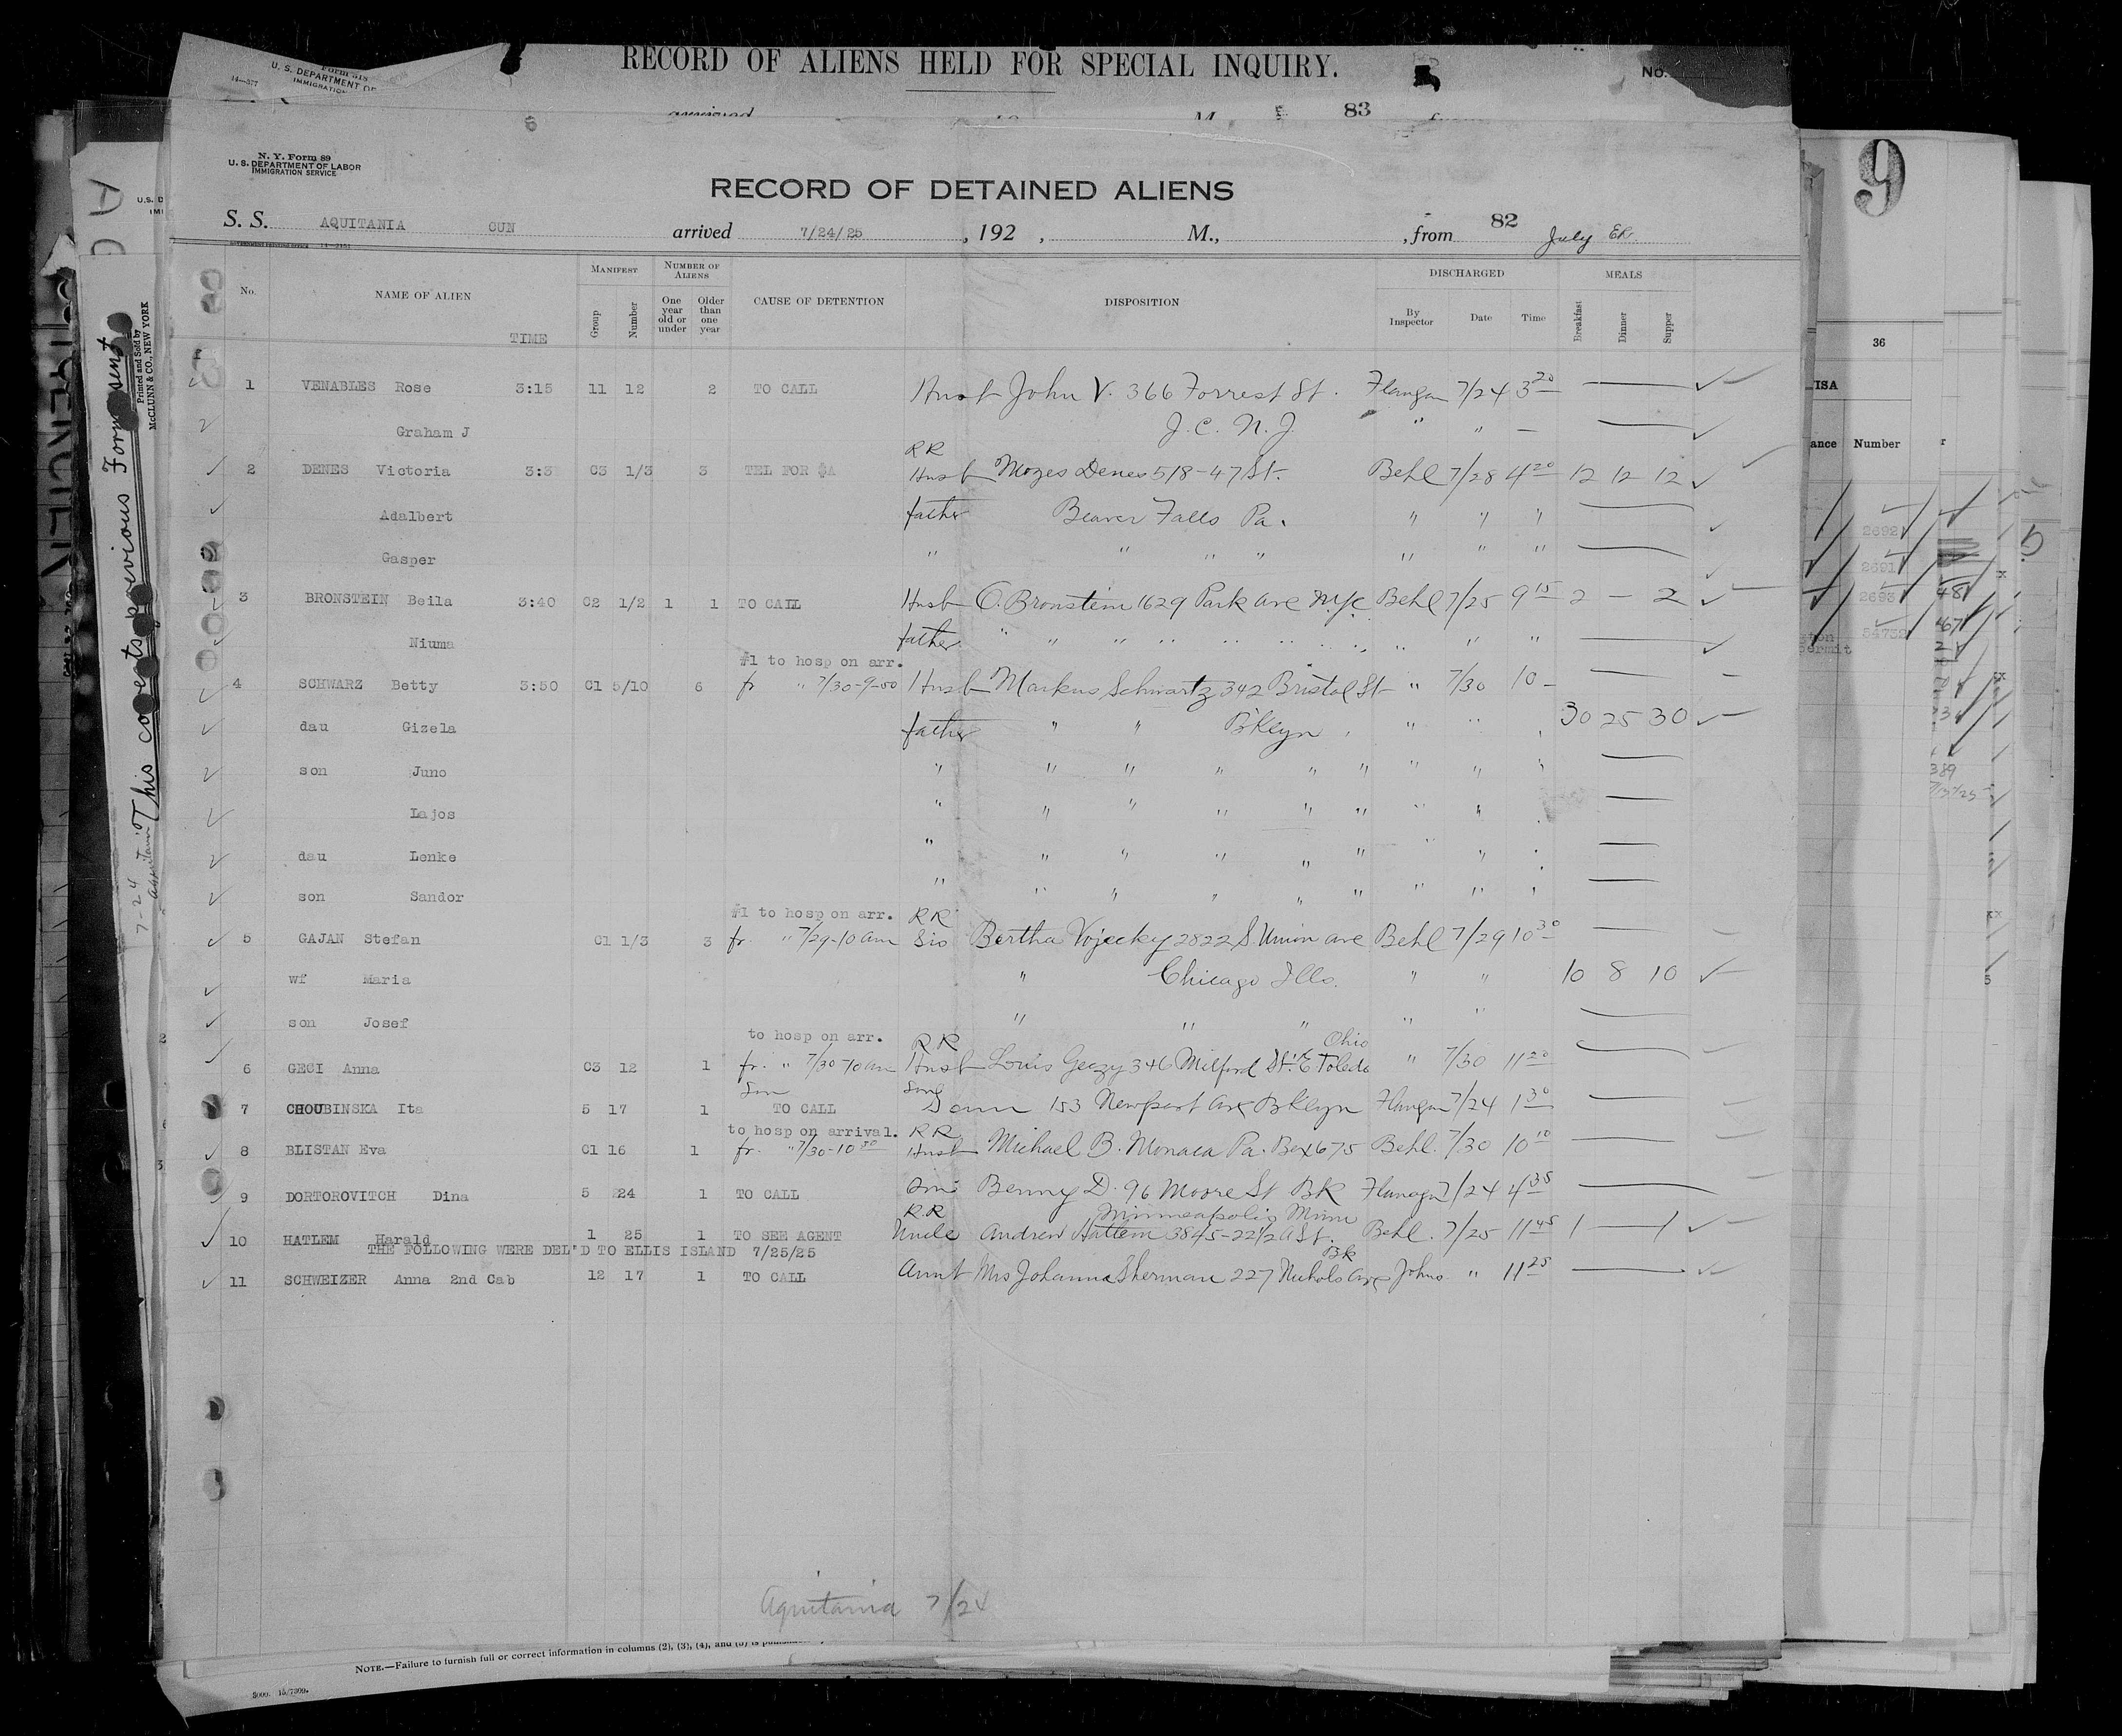 RECORD OF ALIENS HELD FOR SPECIAL INQUIRY.
No.
14—577
U. S. DEPARTMENT OF
IMMIGRATION
83
N. Y. Form 89
U. S. DEPARTMENT OF LABOR
IMMIGRATION SERVICE
RECORD OF DETAINED ALIENS
S. S. AQUITANIA CUN arrived 7/24/25, 192 , M., , from 82 July
No. NAME OF ALIEN TIME MANIFEST Group Number NUMBER OF ALIENS One year old or under Older than one year CAUSE OF DETENTION DISPOSITION DISCHARGED By Inspector Date Time MEALS Breakfast Dinner Supper
1 VENABLES Rose 3:15 11 12 2 TO CALL Husb John V. 366 Forrest St. Flanagan 7/24 3 20 —
Graham J J.C. N.J. " " — —
RR
2 DENES Victoria 3:3 C3 1/3 3 TEL FOR $A Husb Mozes Denes 518-47 St. Behl 7/28 4 20 12 12 12
Adalbert father Beaver Falls Pa. " " " —
Gasper " " " " " " " —
3 BRONSTEIN Beila 3:40 C2 1/2 1 1 TO CALL Husb O. Bronstein 1629 Park Ave NYC Behl 7/25 9 15 2 — 2
Niuma father " " " " " " " " " " —
#1 to hosp on arr.
4 SCHWARZ Betty 3:50 C1 5/10 6 fr " 7/30-9-50 Husb Markus Schwartz 342 Bristol St " 7/30 10 - —
dau Gizela father " " Bklyn " " 30 25 30
son Juno " " " " " " " " " —
Lajos " " " " " " " " —
dau Lenke " " " " " " " " —
son Sandor " " " " " " " " —
#1 to hosp on arr. RR
5 GAJAN Stefan C1 1/3 3 fr. " 7/29-10 am Sis Bertha Vojecky 2822 S. Union ave Behl 7/29 10 30 —
wf Maria " Chicago Ills. " " 10 8 10
son Josef " " " " " —
to hosp on arr. RR Ohio
6 GECI Anna C3 12 1 fr. " 7/30 10 am Husb Louis Geczy 346 Milford St. E Toledo " 7/30 11 20 —
7 CHOUBINSKA Ita 5 17 1 TO CALL 153 Newport Ave Bklyn Flanagan 7/24 1 30 —
to hosp on arrival. RR
8 BLISTAN Eva C1 16 1 fr. " 7/30-10 30 Husb Michael B. Monaca Pa. Box 675 Behl. 7/30 10 10 —
9 DORTOROVITCH Dina 5 24 1 TO CALL Benny D. 96 Moore St BK Flanagan 7/24 4 35 —
R.R Minneapolis Minn
10 HATLEM Harald 1 25 1 TO SEE AGENT Uncle Andrew Hattem 3845-22 1/2 A St. Behl. 7/25 11 45 1 — 1
THE FOLLOWING WERE DEL'D TO ELLIS ISLAND 7/25/25
BK
11 SCHWEIZER Anna 2nd Cab 12 17 1 TO CALL Aunt Mrs Johanna Sherman 227 Nichols Ave Johns " 11 25 —
Aquitania 7/24
NOTE.—Failure to furnish full or correct information in columns (2), (3), (4), and (5) is
This coverts previous Form sent
Printed and Sold by
McCLUNN & CO., NEW YORK
7-24
Aquitania
9
36
VISA
ance Number
2692
2691
2693
54732
48
67
389